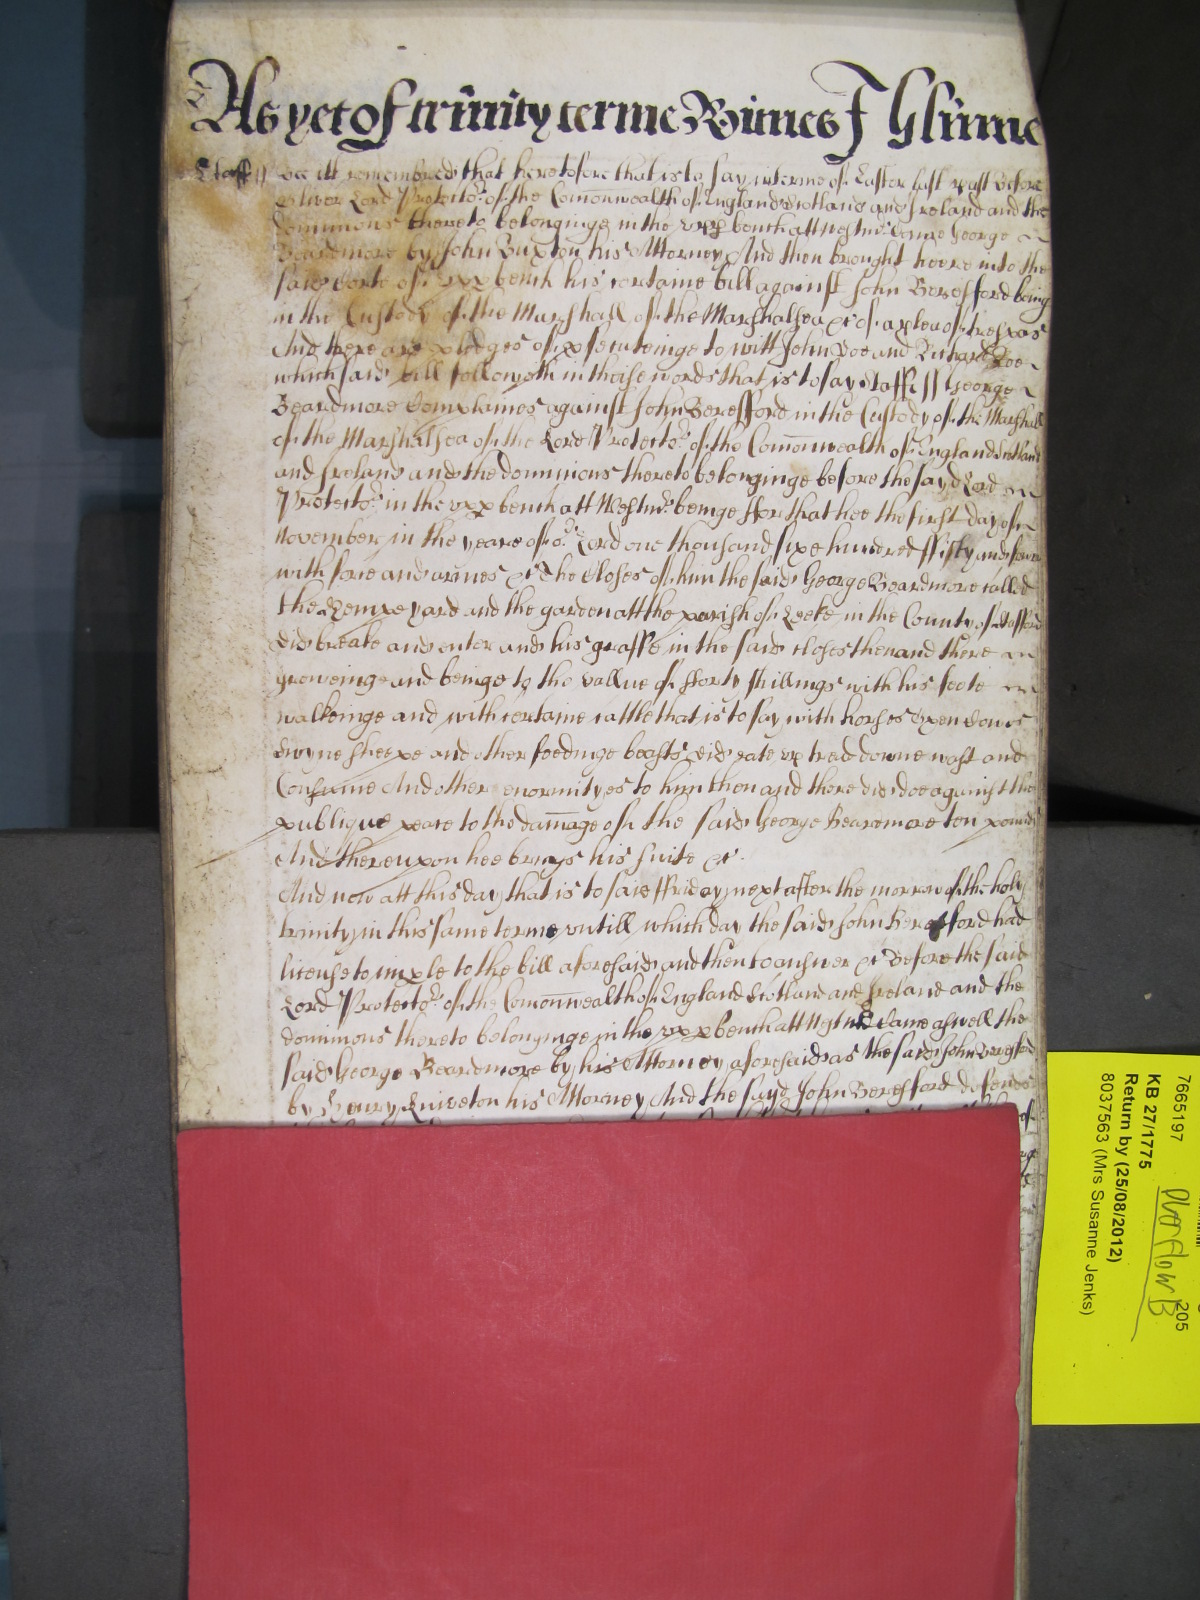 As yet of trinity terme Witnes J Glynne
Staff ss Bee itt remembred that heretofore that is to say in terme of Easter last past Before
Oliver Lord Protector of the Comonwealth of England Scotland and Ireland and the
dominions thereto belonginge in the upp bench att Westmr came George
Beardmore by John Buxton his Attorney And then brought heere into the
said Corte of upp bench his certaine bill against John Beresford being
in the Custody of the Marshall of the Marshalsea &c of a plea of trespas
And there are pledges of psecuteinge to witt John Doe and Richard Roe
which said bill followeth in theise words that is to say Staff ss George
Beardmore Complaines against John Beresford in the Custody of the Marshall
of the Marshalsea of the Lord Protector of the Comonwealth of England Scotland
and Ireland and the dominions thereto belonginge before the sayd Lord
Protector in the upp bench att Westmr beinge ffor that hee the first day of
November in the yeare of or Lord one thousand sixe hundred ffifty and fower
with force and armes &c The Closes of him the said George Beardmore called
the Hempe yard and the garden att the parish of Leeke in the County of Stafford
did breake and enter and his grasse in the said closes then and there
groweinge and beinge to the vallue of fforty shillings with his feete
walkeinge and with certaine cattle that is to say with horses Oxen Cowes
Swyne sheepe and other feedinge beasts did eate up tread downe wast and
Consume And other enormityes to him then and there did doe against the
publique peace to the damage of the said George Beardmore ten pounds
And thereupon hee brings his suite &c.
And now att this day that is to saie ffriday next after the morrow of the holy
trinity in this same terme untill which day the said John Beresford had
license to imple to the bill aforesaid and then to answer &c Before the said
Lord Protector of the Comonwealth of England Scotland and Ireland and the
dominions thereto belonginge in the upp bench att Westmr Came aswell the
said George Beardmore by his Attorney aforesaid as the said John Beresford
by Henry Kniveton his Attorney And the sayd John Beresford defends
7665197
KB 27/1775
Return by (25/08/2012)
8037563 (Mrs Susanne Jenks)
Overflow B
205